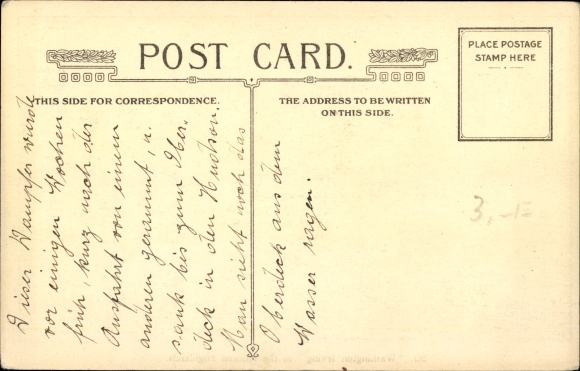 POST CARD.
PLACE POSTAGE
STAMP HERE
THIS SIDE FOR CORRESPONDENCE.
THE ADDRESS TO BE WRITTEN
ON THIS SIDE.
Dieser Dampfer wurde
vor einigen Wochen
früh, kurz nach der
Ausfahrt von einem
anderen gerammt, u.
sank bis zum Ober-
deck in den Hudson.
Man sieht noch das
Oberdeck aus dem
Wasser ragen.
3,-